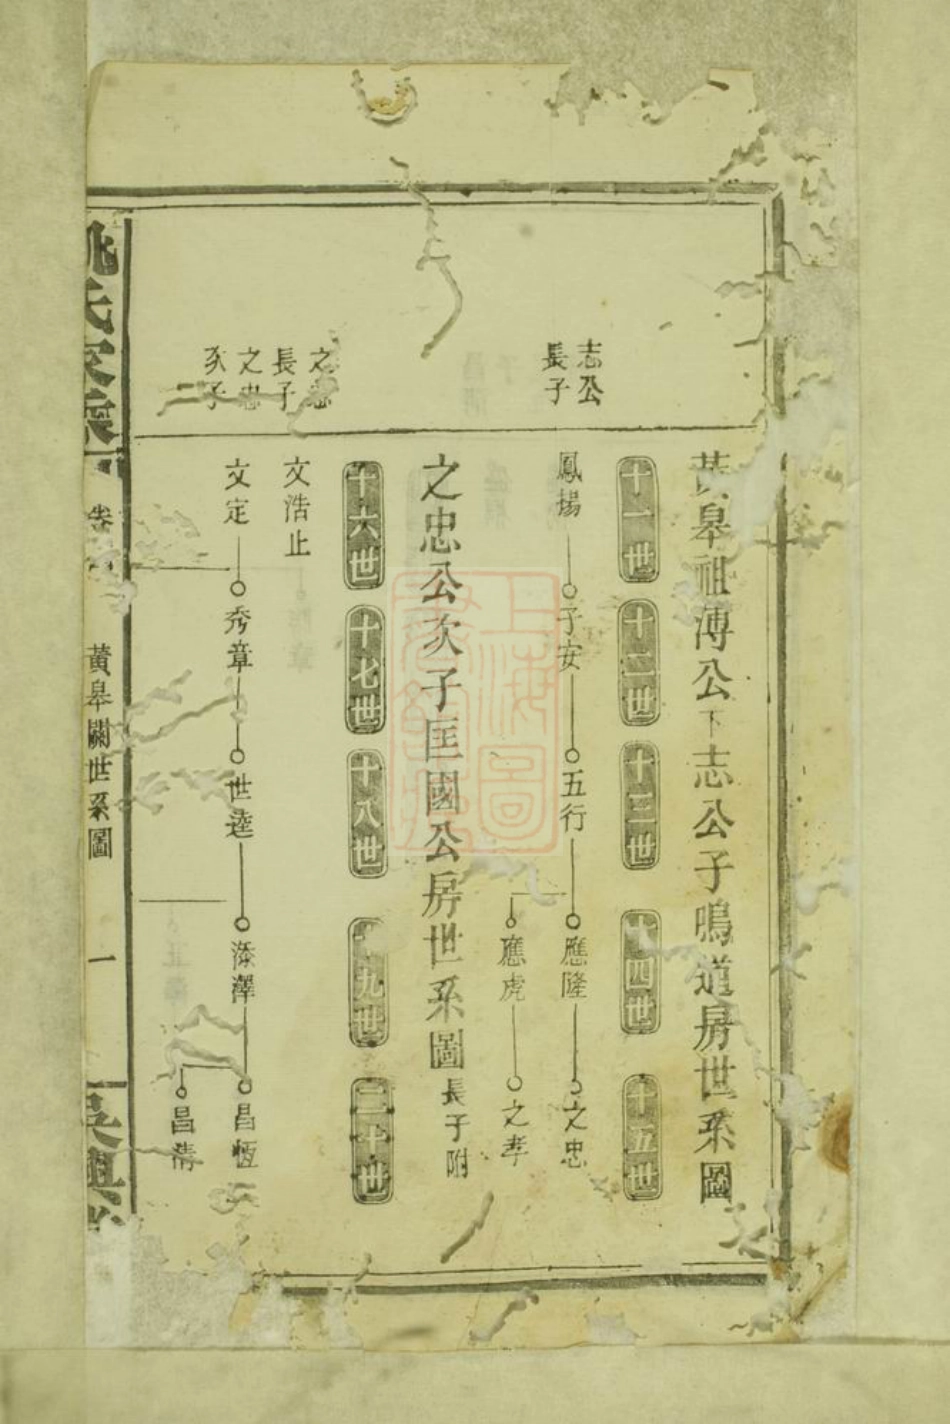 黃皋祖溥公下志公子鳴道房世系圖
十一世 十二世 十三世 十四世 十五世
志公
長子
鳳揚 子安 五行 應隆 之忠
應虎 之孝
之忠公次子匡國公房世系圖長子附
十六世 十七世 十八世 十九世 二十世
之忠
長子
文浩止
之忠
次子
文定 秀章 世逵 添澤 昌恆
昌清
姚氏家乘
卷
黃皋闗世系圖
一
吳興
上海圖書館藏